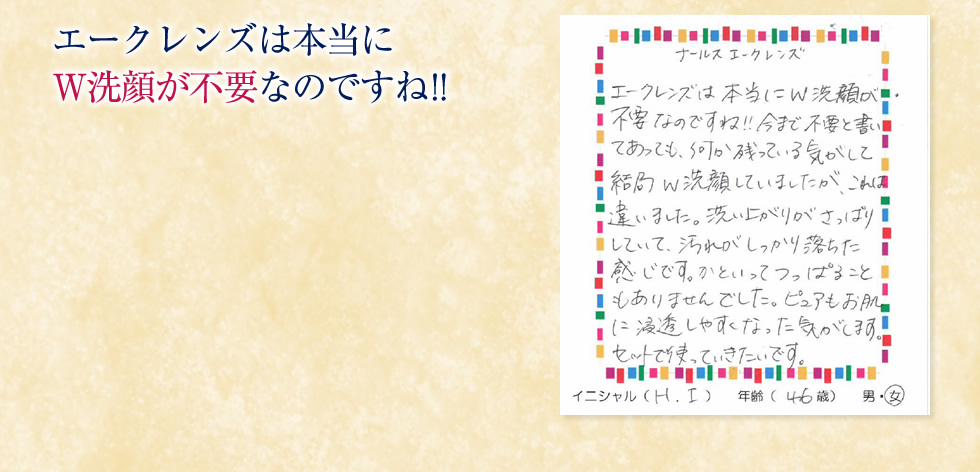 エークレンズは本当に
W洗顔が不要なのですね!!
ナールスエークレンズ
エークレンズは本当にW洗顔が
不要なのですね!!今まで不要と書い
てあっても、何か残っている気がして
結局W洗顔していましたが、これは
違いました。洗い上がりがさっぱり
していて、汚れがしっかり落ちた
感じです。かといってつっぱること
もありませんでした。ピュアもお肌
に浸透しやすくなった気がします。
セットで使っていきたいです。
イニシャル(H.I) 年齢(46歳) 男・女